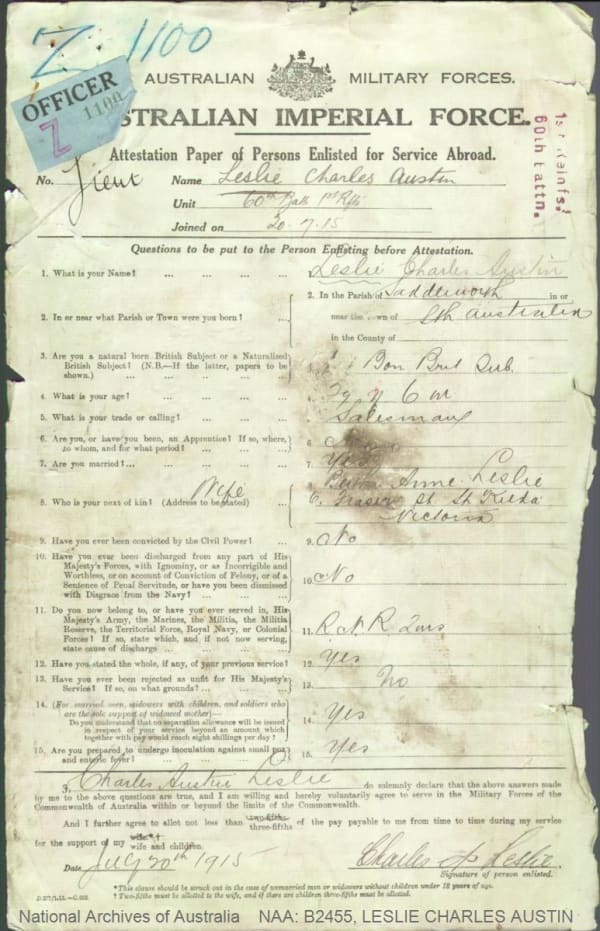 Z 1100
OFFICER
Z 1100
AUSTRALIAN MILITARY FORCES.
STRALIAN IMPERIAL FORCE.
1st Reinfs.
60th Battn.
Attestation Paper of Persons Enlisted for Service Abroad.
No. Lieut Name Leslie Charles Austin
Unit 60th Batt 1st Rfts
Joined on 20.7.15
Questions to be put to the Person Enlisting before Attestation.
1. What is your Name? ... ... ... Leslie Charles Austin
2. In or near what Parish or Town were you born? ... 2. In the Parish of Saddleworth in or
near the town of Sth Australia
in the County of
3. Are you a natural born British Subject or a Naturalized
British Subject? (N.B.—If the latter, papers to be
shown.) ... ... ... Bon Brit Sub.
4. What is your age? ... ... ... 6 m
5. What is your trade or calling? ... ... Salesman
6. Are you, or have you been, an Apprentice? If so, where,
to whom, and for what period? ... ... 6
7. Are you married? ... ... ... 7 Yes
8. Who is your next of kin? (Address to be stated) Wife 8 Anne Leslie
Fraser St St Kilda
Victoria
9. Have you ever been convicted by the Civil Power? ... 9. No
10. Have you ever been discharged from any part of His
Majesty's Forces, with Ignominy, or as Incorrigible and
Worthless, or on account of Conviction of Felony, or of a
Sentence of Penal Servitude, or have you been dismissed
with Disgrace from the Navy? ... ... 10. No
11. Do you now belong to, or have you ever served in, His
Majesty's Army, the Marines, the Militia, the Militia
Reserve, the Territorial Force, Royal Navy, or Colonial
Forces? If so, state which, and if not now serving,
state cause of discharge ... ... 11. R.A.R.
12. Have you stated the whole, if any, of your previous service? 12. Yes
13. Have you ever been rejected as unfit for His Majesty's
Service? If so, on what grounds? ... ... 13. No
14. (For married men, widowers with children, and soldiers who
are the sole support of widowed mother)—
Do you understand that no separation allowance will be issued
in respect of your service beyond an amount which
together with pay would reach eight shillings per day? 14. Yes
15. Are you prepared to undergo inoculation against small pox
and enteric fever? ... ... 15. Yes
I, Charles Austin Leslie do solemnly declare that the above answers made
by me to the above questions are true, and I am willing and hereby voluntarily agree to serve in the Military Forces of the
Commonwealth of Australia within or beyond the limits of the Commonwealth.
And I further agree to allot not less than two-fifths three-fifths of the pay payable to me from time to time during my service
for the support of my wife* wife and children.
Date July 20th 1915 Charles A Leslie
Signature of person enlisted.
*This clause should be struck out in the case of unmarried men or widowers without children under 18 years of age.
† Two-fifths must be allotted to the wife, and if there are children three-fifths must be allotted.
National Archives of Australia NAA: B2455, LESLIE CHARLES AUSTIN